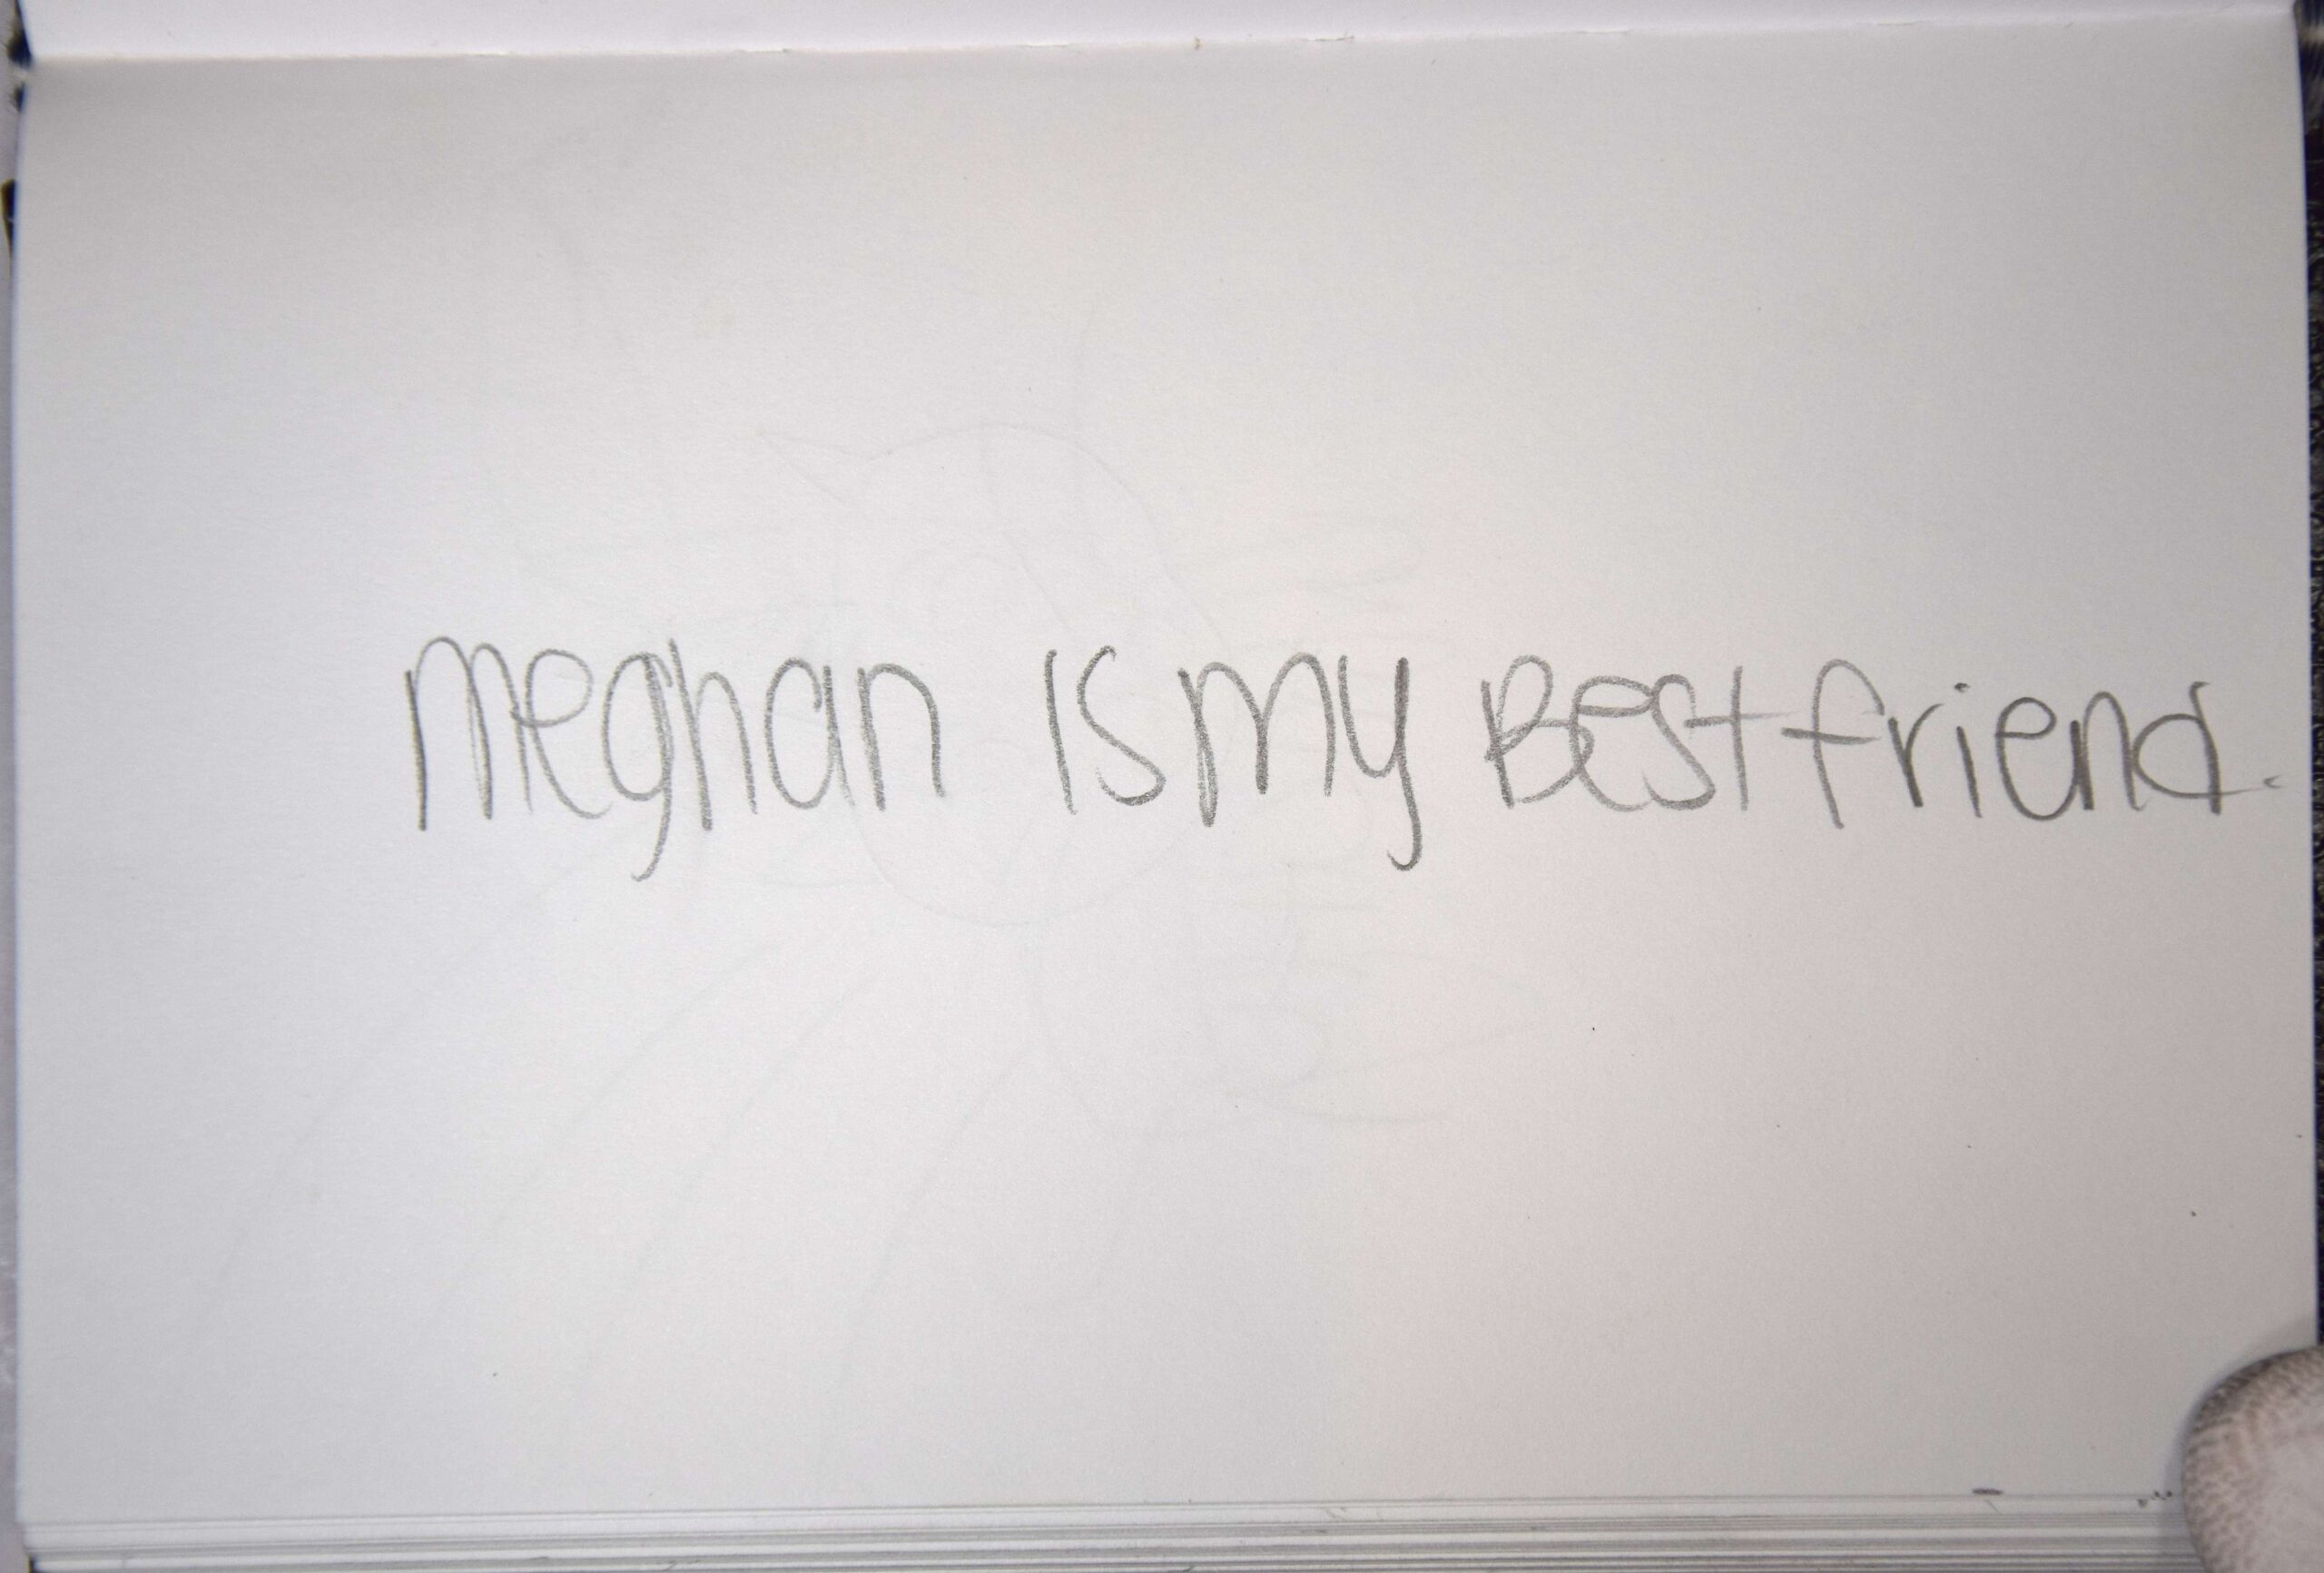 meghan is my Best friend.